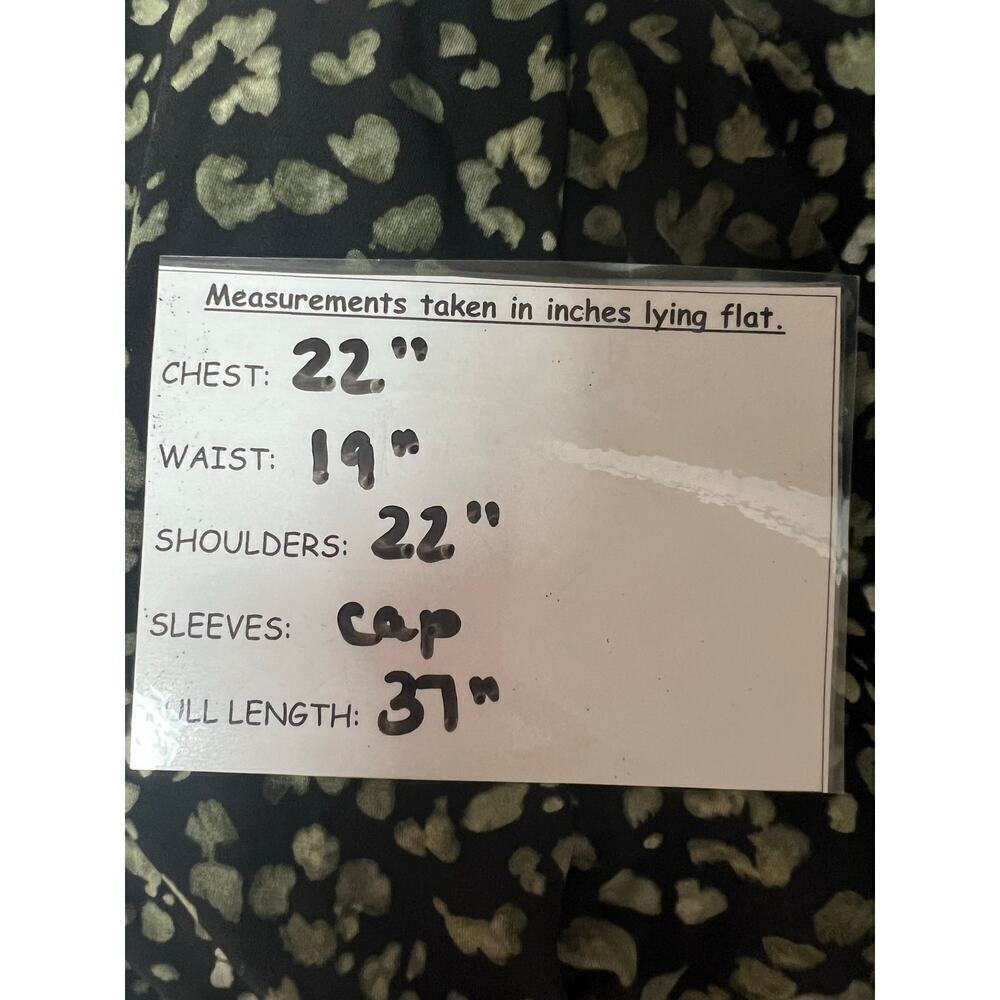 Measurements taken in inches lying flat.
CHEST: 22"
WAIST: 19"
SHOULDERS: 22"
SLEEVES: cap
ULL LENGTH: 37"